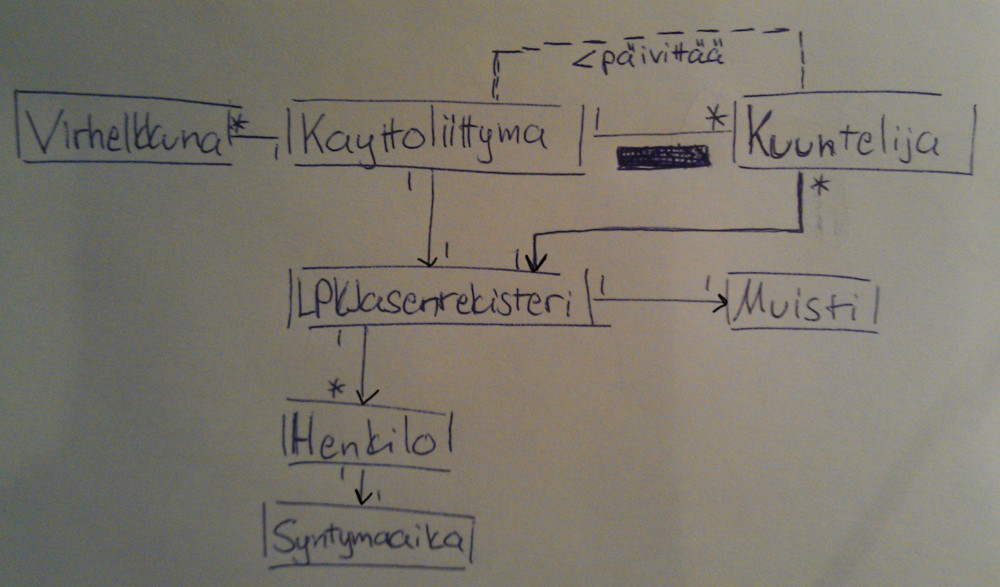 <päivittää
Virheikkuna * 1 Kayttoliittyma 1 * Kuuntelija
1 *
1 1
LPKJasenrekisteri 1 1 Muisti
1
*
Henkilo
1
1
Syntymaaika